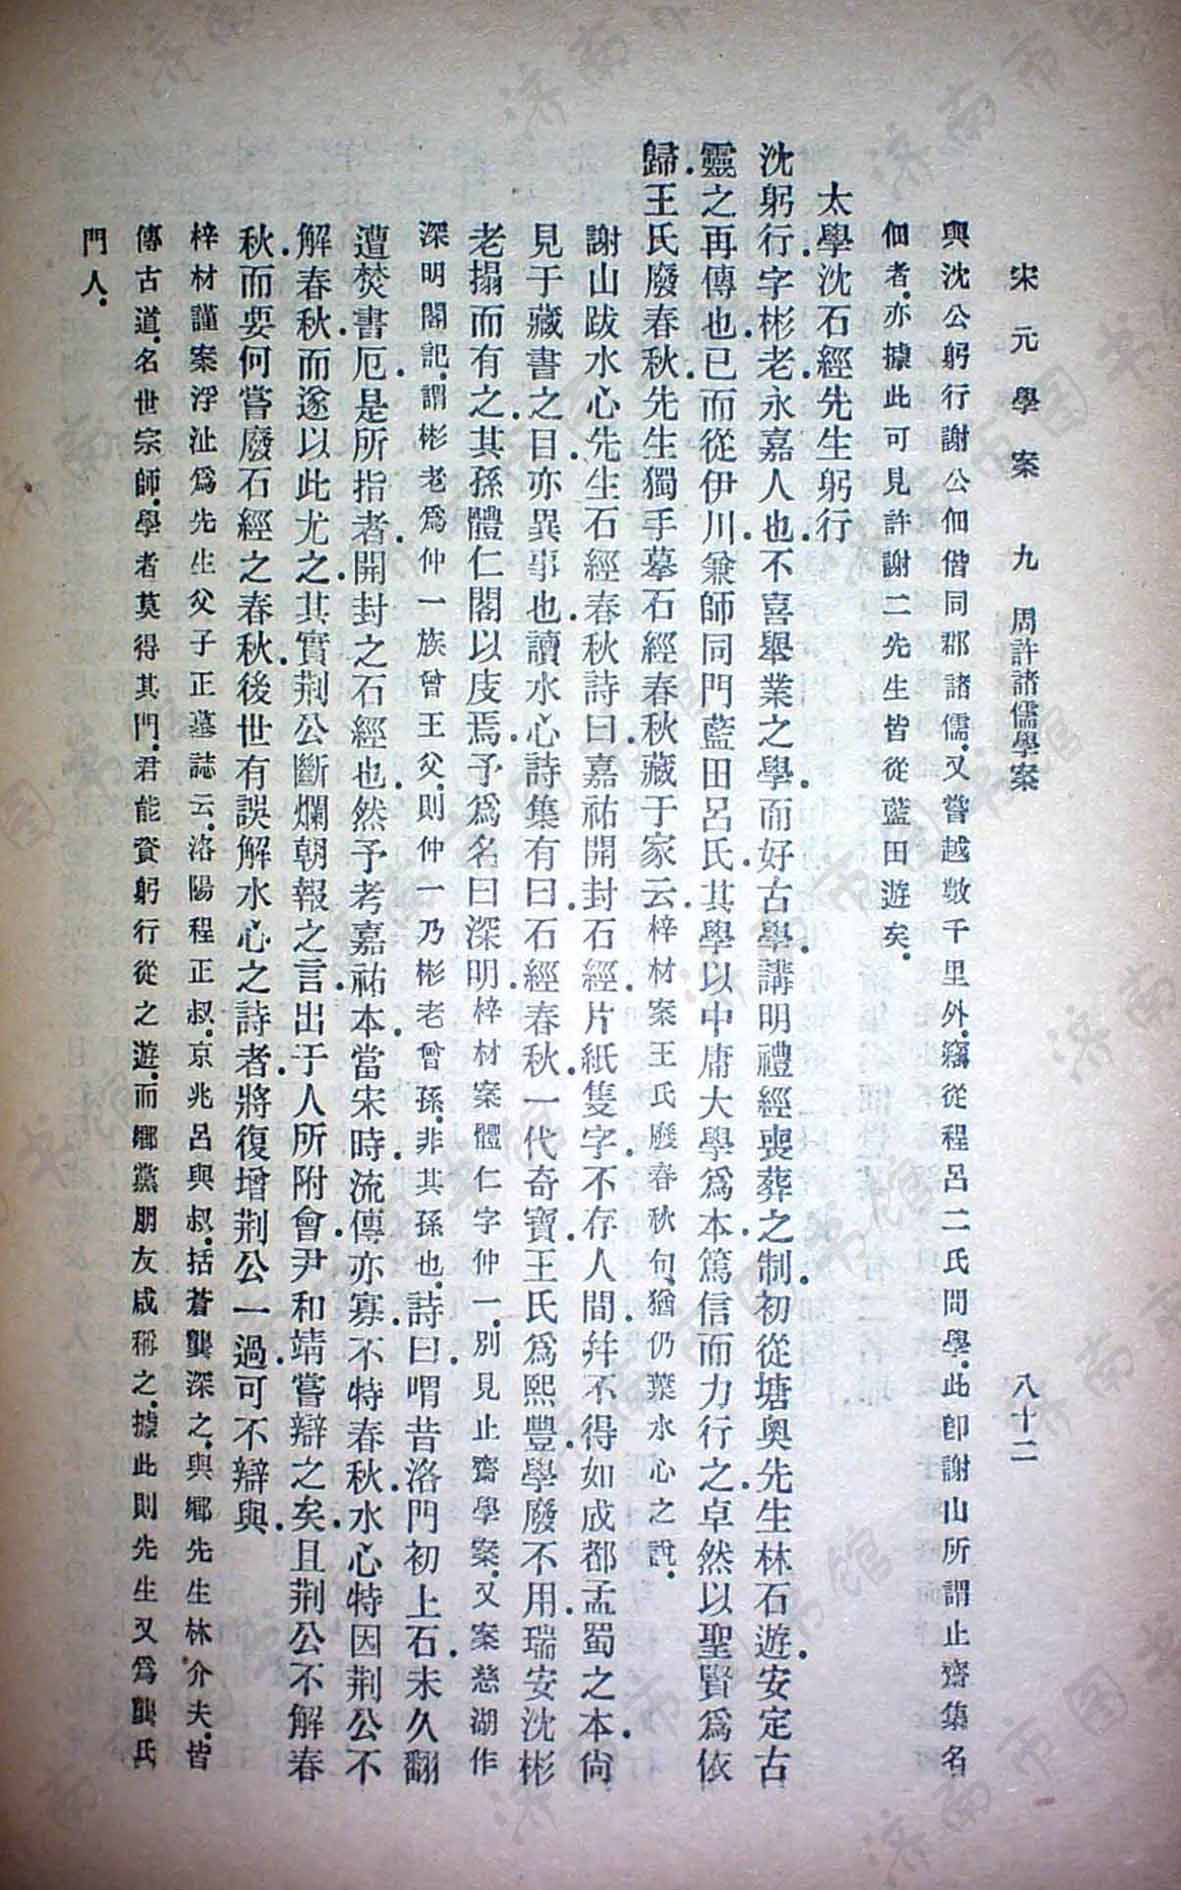 宋元學案 九 周許諸儒學案 八十二
與沈公躬行謝公佃偕同郡諸儒又嘗越數千里外竊從程呂二氏問學此卽謝山所謂止齋集名
佃者亦據此可見許謝二先生皆從藍田遊矣
太學沈石經先生躬行
沈躬行字彬老永嘉人也不喜舉業之學而好古學講明禮經喪葬之制初從塘奧先生林石遊安定古
靈之再傳也已而從伊川兼師同門藍田呂氏其學以中庸大學爲本篤信而力行之卓然以聖賢爲依
歸王氏廢春秋先生獨手摹石經春秋藏于家云梓材案王氏廢春秋句猶仍葉水心之說
謝山跋水心先生石經春秋詩曰嘉祐開封石經片紙隻字不存人間幷不得如成都孟蜀之本尙
見于藏書之目亦異事也讀水心詩集有曰石經春秋一代奇寶王氏爲熙豐學廢不用瑞安沈彬
老搨而有之其孫體仁閣以庋焉予爲名曰深明梓材案體仁字仲一別見止齋學案又案慈湖作
深明閣記謂彬老爲仲一族曾王父則仲一乃彬老曾孫非其孫也詩曰喟昔洛門初上石未久翻
遭焚書厄是所指者開封之石經也然予考嘉祐本當宋時流傳亦寡不特春秋水心特因荆公不
解春秋而遂以此尤之其實荆公斷爛朝報之言出于人所附會尹和靖嘗辯之矣且荆公不解春
秋而要何嘗廢石經之春秋後世有誤解水心之詩者將復增荆公一過可不辯與
梓材謹案浮沚爲先生父子正墓誌云洛陽程正叔京兆呂與叔括蒼龔深之與鄉先生林介夫皆
傳古道名世宗師學者莫得其門君能資躬行從之遊而鄉黨朋友咸稱之據此則先生又爲龔氏
門人